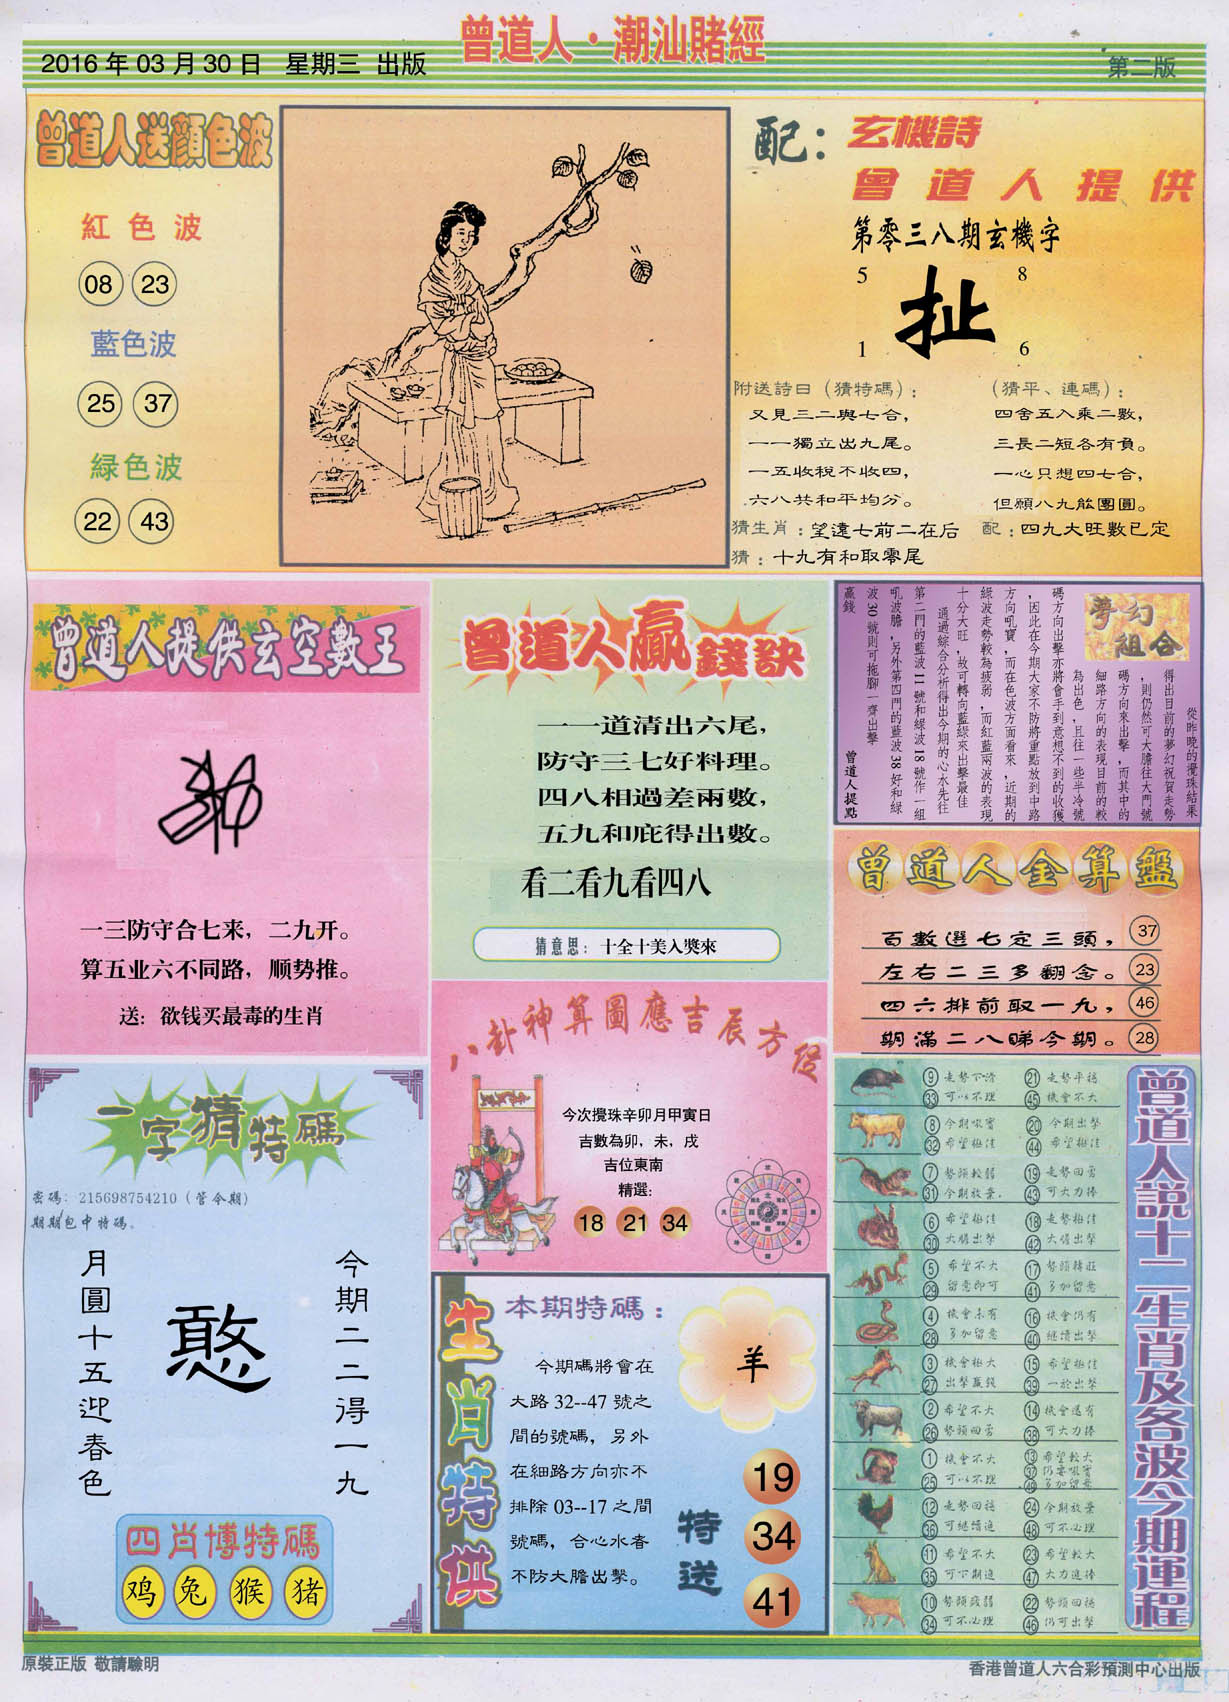 曾道人·潮汕賭經
2016年03月30日 星期三 出版
第二版
曾道人送顏色波
紅色波
08 23
藍色波
25 37
緑色波
22 43
配:玄機詩
曾道人提供
第零三八期玄機字
5 8
扯
1 6
附送詩曰(猜特碼):
又見三二與七合,
一一獨立出九尾。
一五收稅不收四,
六八共和平均分。
(猜平、連碼):
四舍五入乘二數,
三長二短各有負。
一心只想四七合,
但願八九能團圓。
猜生肖:望遠七前二在后
配:四九大旺數已定
猜:十九有和取零尾
曾道人提供玄空數王
一三防守合七来,二九开。
算五业六不同路,顺势推。
送:欲钱买最毒的生肖
曾道人贏錢訣
一一道清出六尾,
防守三七好料理。
四八相過差兩數,
五九和庇得出數。
看二看九看四八
猜意思:十全十美入獎來
夢幻組合
從昨晚的攪珠結果
得出目前的夢幻祝賀走勢
,則仍然可大膽往大門號
碼方向來出擊,而其中的
細路方向的表現目前的較
為出色,且往一些半冷號
碼方向出擊亦將會手到意想不到的收獲
,因此在今期大家不防將重點放到中路
方向吼寶,而在色波方面看來,近期的
綠波走勢較為疲弱,而紅藍兩波的表現
十分大旺,故可轉向藍綠來出擊最佳
通過綜合分析得出今期的心水先往
第二門的藍波11號和綠波18號作一組
吼波膽,另外第四門的藍波38好和綠
波30號則可拖腳一齊出擊
贏錢
曾道人提點
曾道人金算盤
百數選七定三頭, 37
左右二三多翻念。 23
四六排前取一九, 46
期滿二八睇今期。 28
八卦神算圖應吉辰方位
今次攪珠辛卯月甲寅日
吉數為卯,未,戌
吉位東南
精選:
18 21 34
一字猜特碼
密碼:215698754210(管今期)
期期包中特碼。
今期二二得一九
憨
月圓十五迎春色
四肖博特碼
鸡 兔 猴 猪
生肖特供
本期特碼:
今期碼將會在
大路32--47號之
間的號碼,另外
在細路方向亦不
排除03--17之間
號碼,合心水者
不防大膽出擊。
羊
特送
19
34
41
曾道人説十二生肖及各波今期運程
9 走勢下滑 21 走勢平穩
33 可以不理 45 機會不大
8 今期吸寶 20 今期出擊
32 希望極佳 44 希望極佳
7 勢頭較弱 19 走勢回勇
31 今期放棄. 43 可大力捧
6 希望極佳 18 走勢極佳
30 大膽出擊 42 大膽出擊
5 希望不大 17 勢頭轉旺
29 留意即可 41 多加留意
4 機會未有 16 機會仍有
28 多加留意 40 繼續出擊
3 機會極大 15 希望極佳
27 出擊贏錢 39 一於出擊
2 希望不大 14 機會還有
26 勢頭回勇 38 可大力捧
1 機會不大 13 希望較大
25 可以不理 37 仍要吸寶
49 多加留意
12 走勢回穩 24 今期放棄
36 可繼續追 48 可不必理
11 希望不大 23 希望較大
35 可下期追 47 大力追捧
10 勢頭疲弱 22 勢頭回穩
34 可不必理 46 仍可出擊
原裝正版 敬請驗明
香港曾道人六合彩預測中心出版